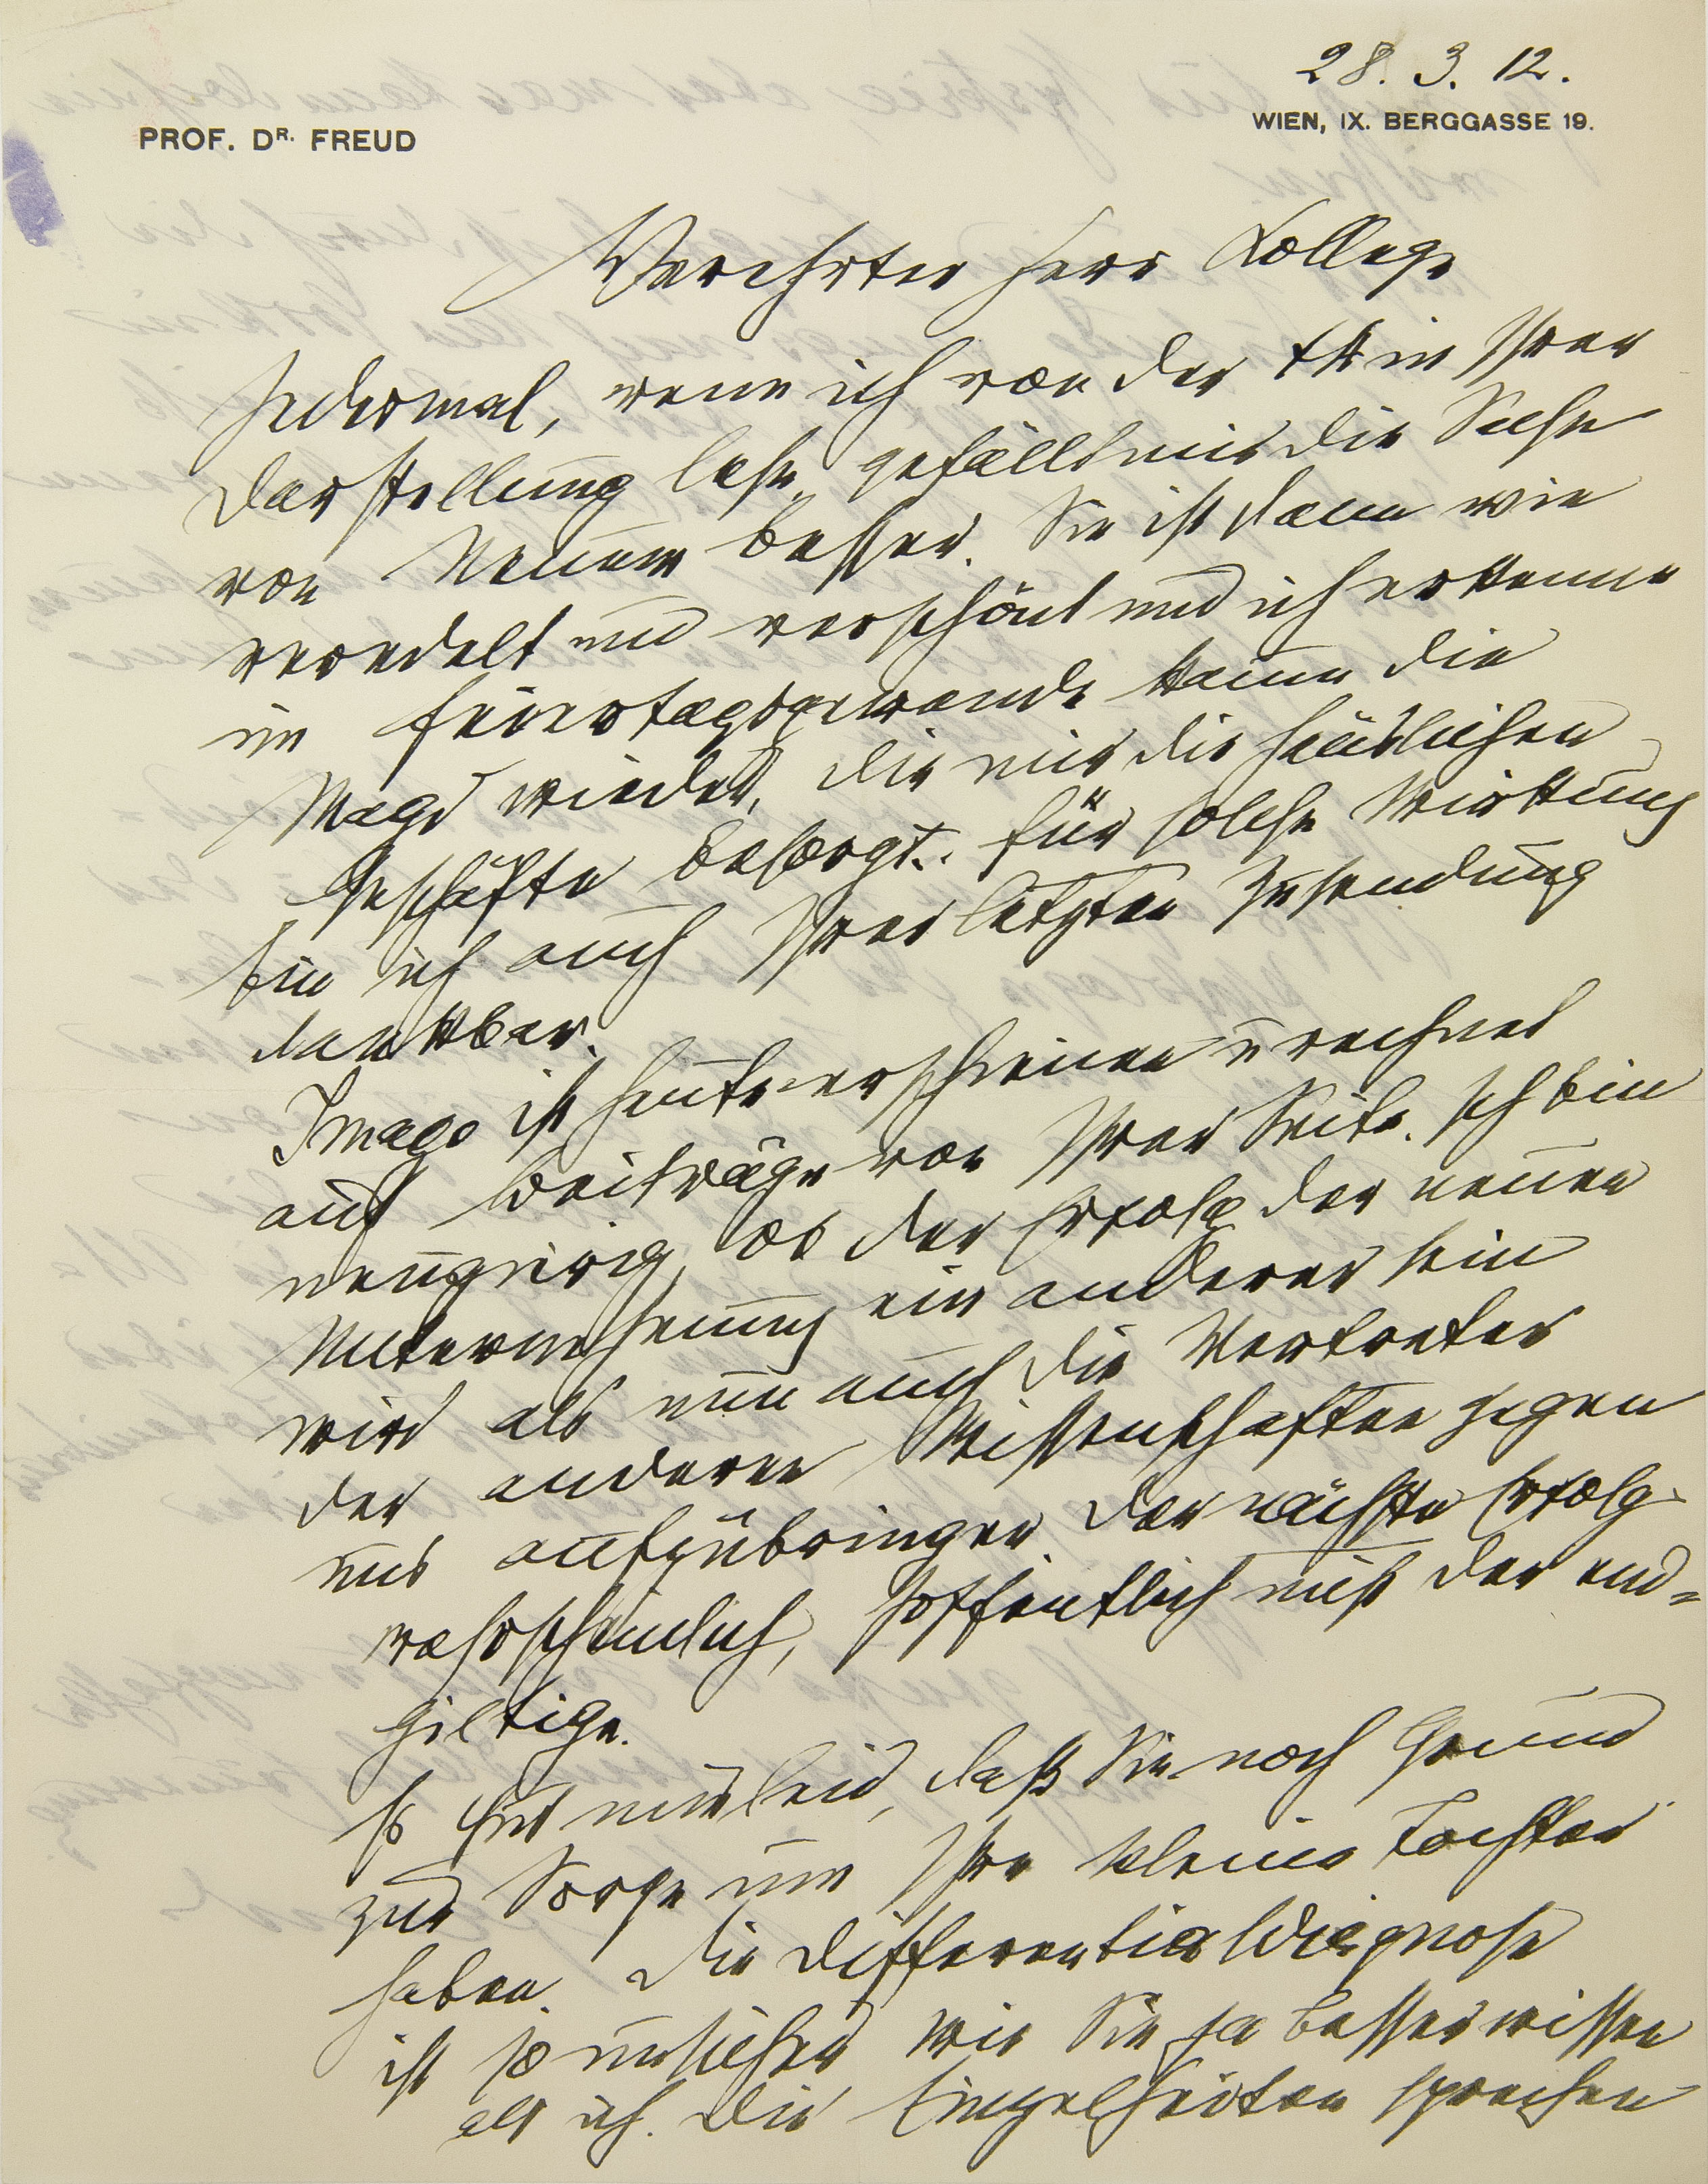 28. 3. 12.
PROF. DR. FREUD
WIEN, IX. BERGGASSE 19.
Verehrter Herr Kollege
Jedesmal, wenn ich von der ΨA in Ihrer
Darstellung lese, gefällt mir die Sache
von Neuem besser. Sie ist dann wie
veredelt und verschönt und ich erkenne
im Feiertagsgewande kaum die
Magd wieder, die mir die häuslichen
Geschäfte besorgt. Für solche Wirkung
bin ich auch Ihrer letzten Zusendung
dankbar.
Imago ist heute erschienen u rechnet
auf Beiträge von Ihrer Seite. Ich bin
neugierig, ob der Erfolg der neuen
Unternehmung ein anderer sein
wird als nun auch die Vertreter
der anderen Wissenschaften gegen
uns aufzubringen. Der nächste Erfolg
wahrscheinlich, hoffentlich nicht der end-
giltige.
Es thut mir leid, daß Sie noch Grund
zur Sorge um Ihre kleine Tochter
haben. Die Differentialdiagnose
ist so unsicher wie Sie ja besser wissen
als ich. Die Einzelheiten sprechen